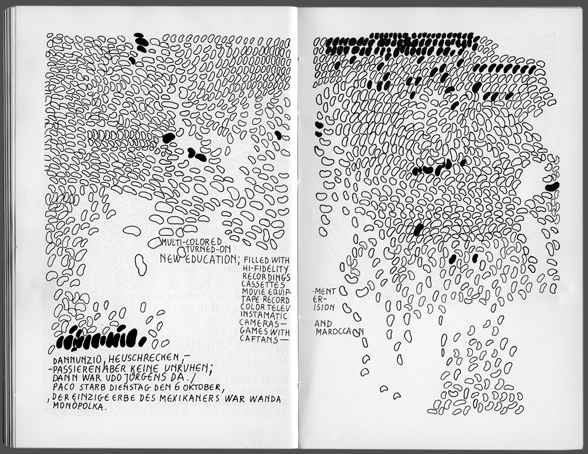 MULTI-COLORED
TURNED-ON
NEW EDUCATION; FILLED WITH
HI-FIDELITY
RECORDINGS
CASSETTES
MOVIE EQUIP-
TAPE RECORD
COLOR TELEV
INSTAMATIC
CAMERAS—
GAMES WITH
CAFTANS—
DANNUNZIO, HEUSCHRECKEN,—
-PASSIEREN ABER KEINE UNRUHEN;
DANN WAR UDO JÜRGENS DA./
PACO STARB DIENSTAG DEN 6 OKTOBER,
,DER EINZIGE ERBE DES MEXIKANERS WAR WANDA
MONOPOLKA.
-MENT
ER-
ISION
AND
MAROCCAON